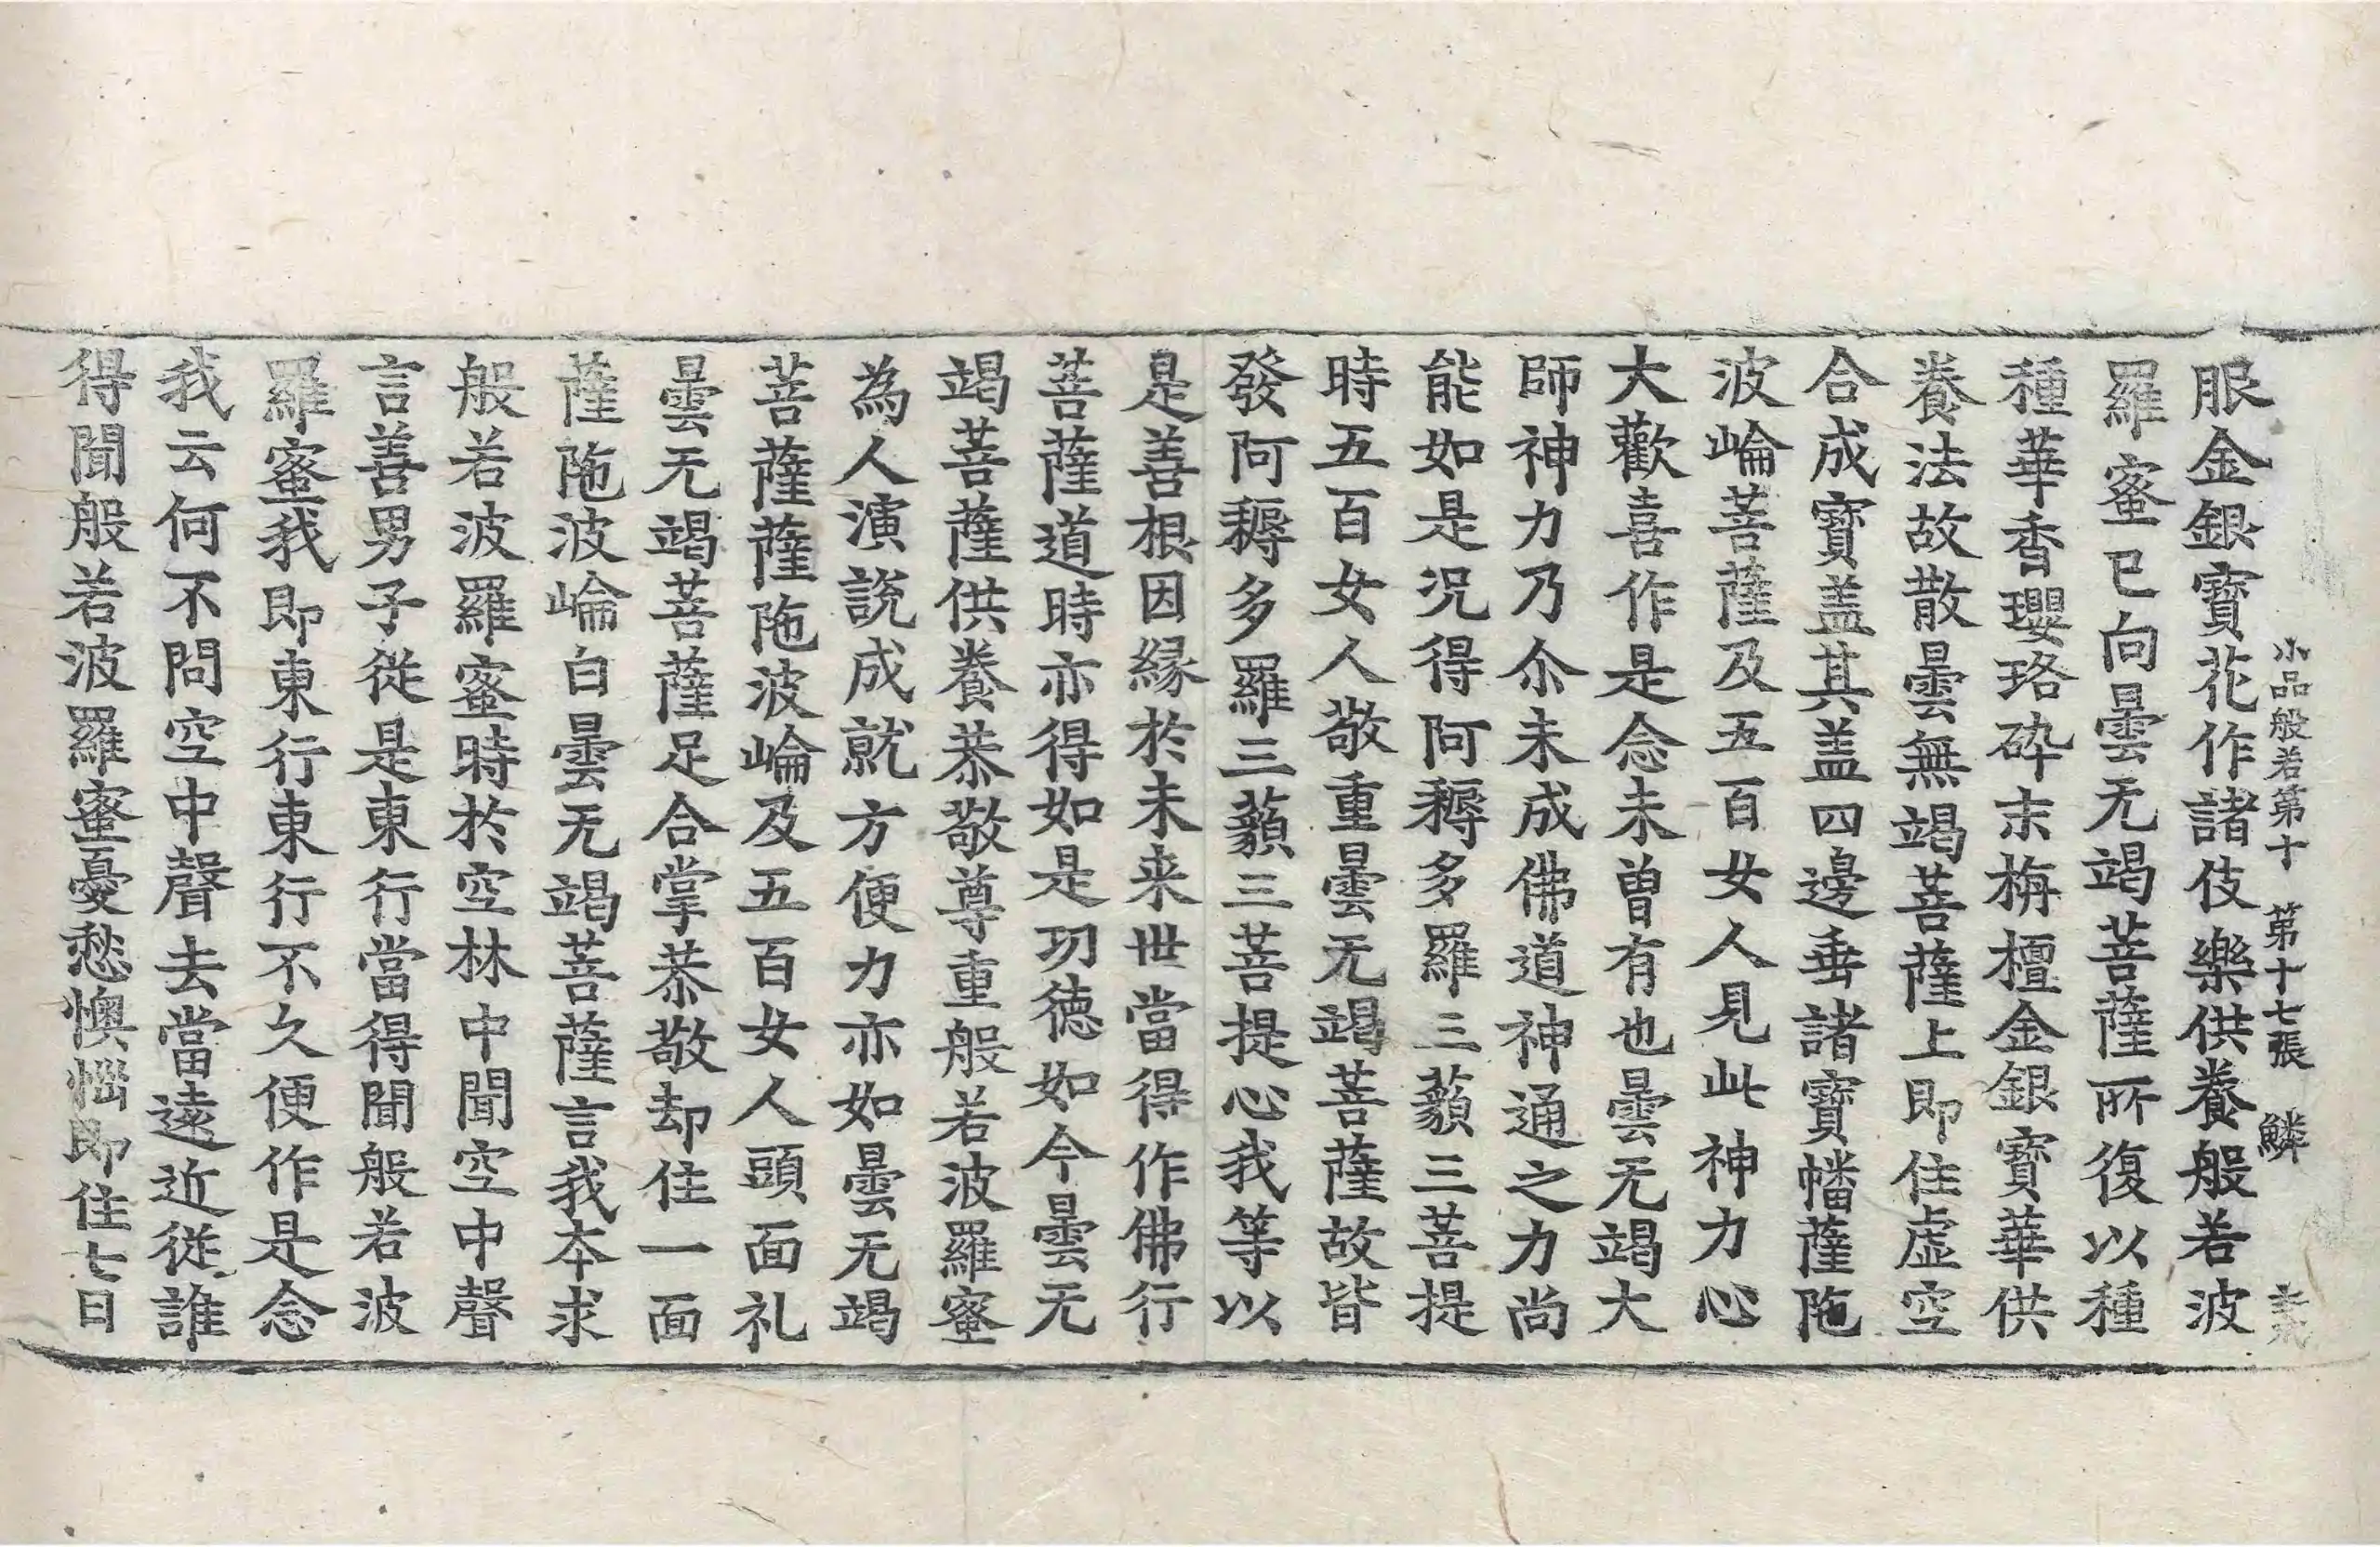 小品般若第十 第十七張 鱗
服金銀寶花作諸伎樂供養般若波
羅蜜已向曇无竭菩薩所復以種
種華香瓔珞碎末栴檀金銀寶華供
養法故散曇無竭菩薩上即住虛空
合成寶盖其盖四邊垂諸寶幡薩陁
波崘菩薩及五百女人見此神力心
大歡喜作是念未曾有也曇无竭大
師神力乃尒未成佛道神通之力尚
能如是况得阿耨多羅三藐三菩提
時五百女人敬重曇无竭菩薩故皆
發阿耨多羅三藐三菩提心我等以
是善根因縁於未来世當得作佛行
菩薩道時亦得如是功德如今曇无
竭菩薩供養恭敬尊重般若波羅蜜
為人演說成就方便力亦如曇无竭
菩薩薩陁波崘及五百女人頭面礼
曇无竭菩薩足合掌恭敬却住一面
薩陁波崘白曇无竭菩薩言我本求
般若波羅蜜時於空林中聞空中聲
言善男子從是東行當得聞般若波
羅蜜我即東行東行不久便作是念
我云何不問空中聲去當遠近從誰
得聞般若波羅蜜憂愁懊惱即住七日